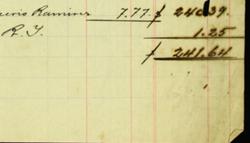 Ramirez 7.77. $ 240.39.
R. T. 1.25
$ 241.64